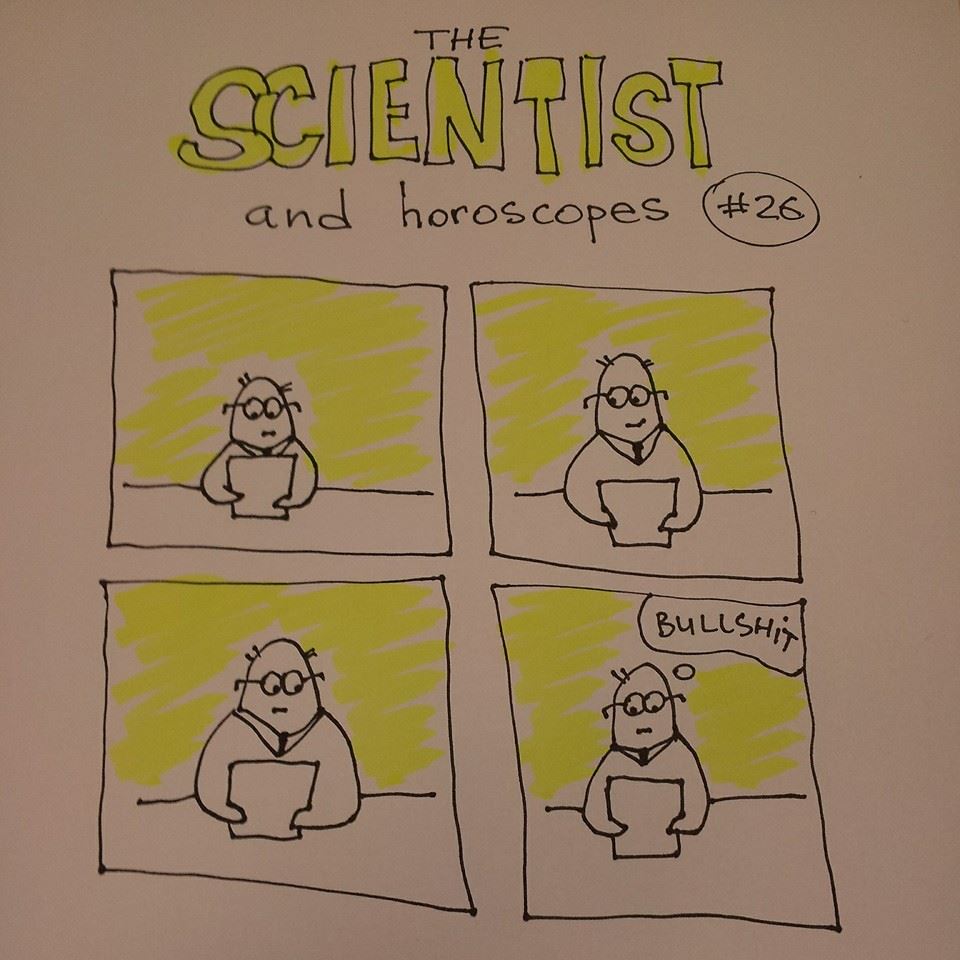 THE
SCIENTIST
and horoscopes #26
BULLSHiT